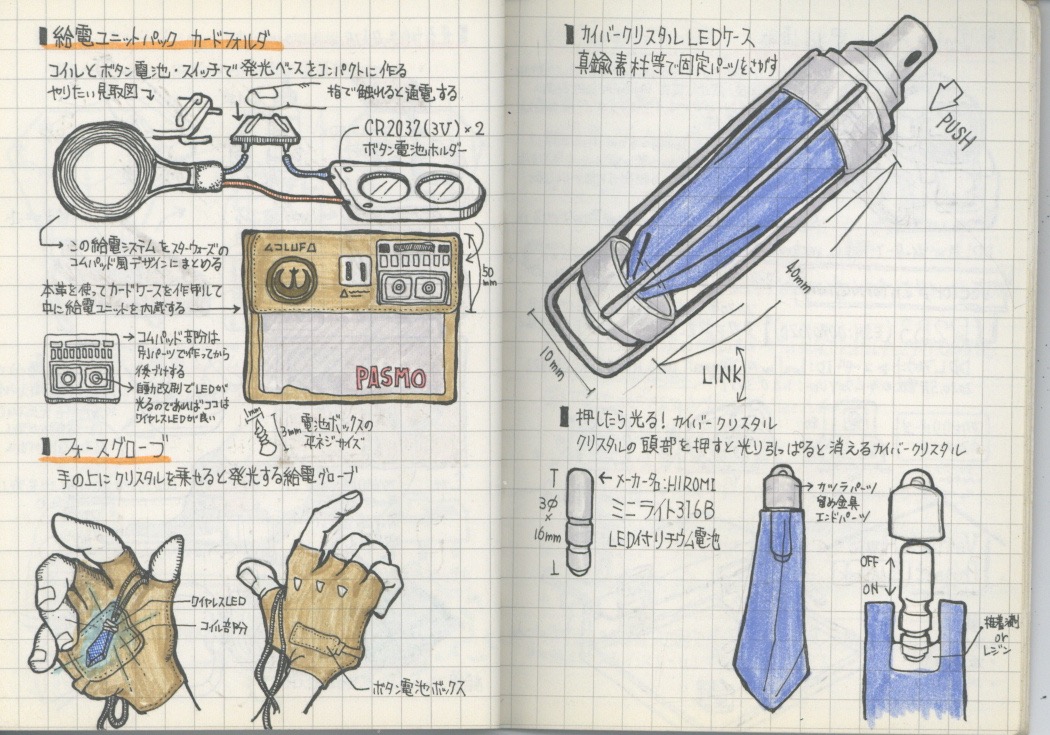 給電ユニットパック カードフォルダ
コイルとボタン電池・スイッチで発光ベースをコンパクトに作る
やりたい見取図
指で触れると通電する
CR2032(3V)×2
ボタン電池ホルダー
この給電システムをスターウォーズの
コムパッド風デザインにまとめる
本革を使ってカードケースを作成して
中に給電ユニットを内蔵する
コムパッド部分は
別パーツで作ってから
後づけする
自動改札でLEDが
光るのであればココは
ワイヤレスLEDが良い
50mm
PASMO
1mm
3mm
電池ボックスの
平ネジサイズ
フォースグローブ
手の上にクリスタルを乗せると発光する給電グローブ
ワイヤレスLED
コイル部分
ボタン電池ボックス
カイバークリスタルLEDケース
真鍮素材等で固定パーツをさがす
PUSH
40mm
10mm
LINK
押したら光る! カイバークリスタル
クリスタルの頭部を押すと光り引っぱると消えるカイバークリスタル
3φ
×
16mm
メーカー名:HIROMI
ミニライト316B
LED付リチウム電池
カツラパーツ
留め金具
エンドパーツ
OFF
ON
接着剤
or
レジン